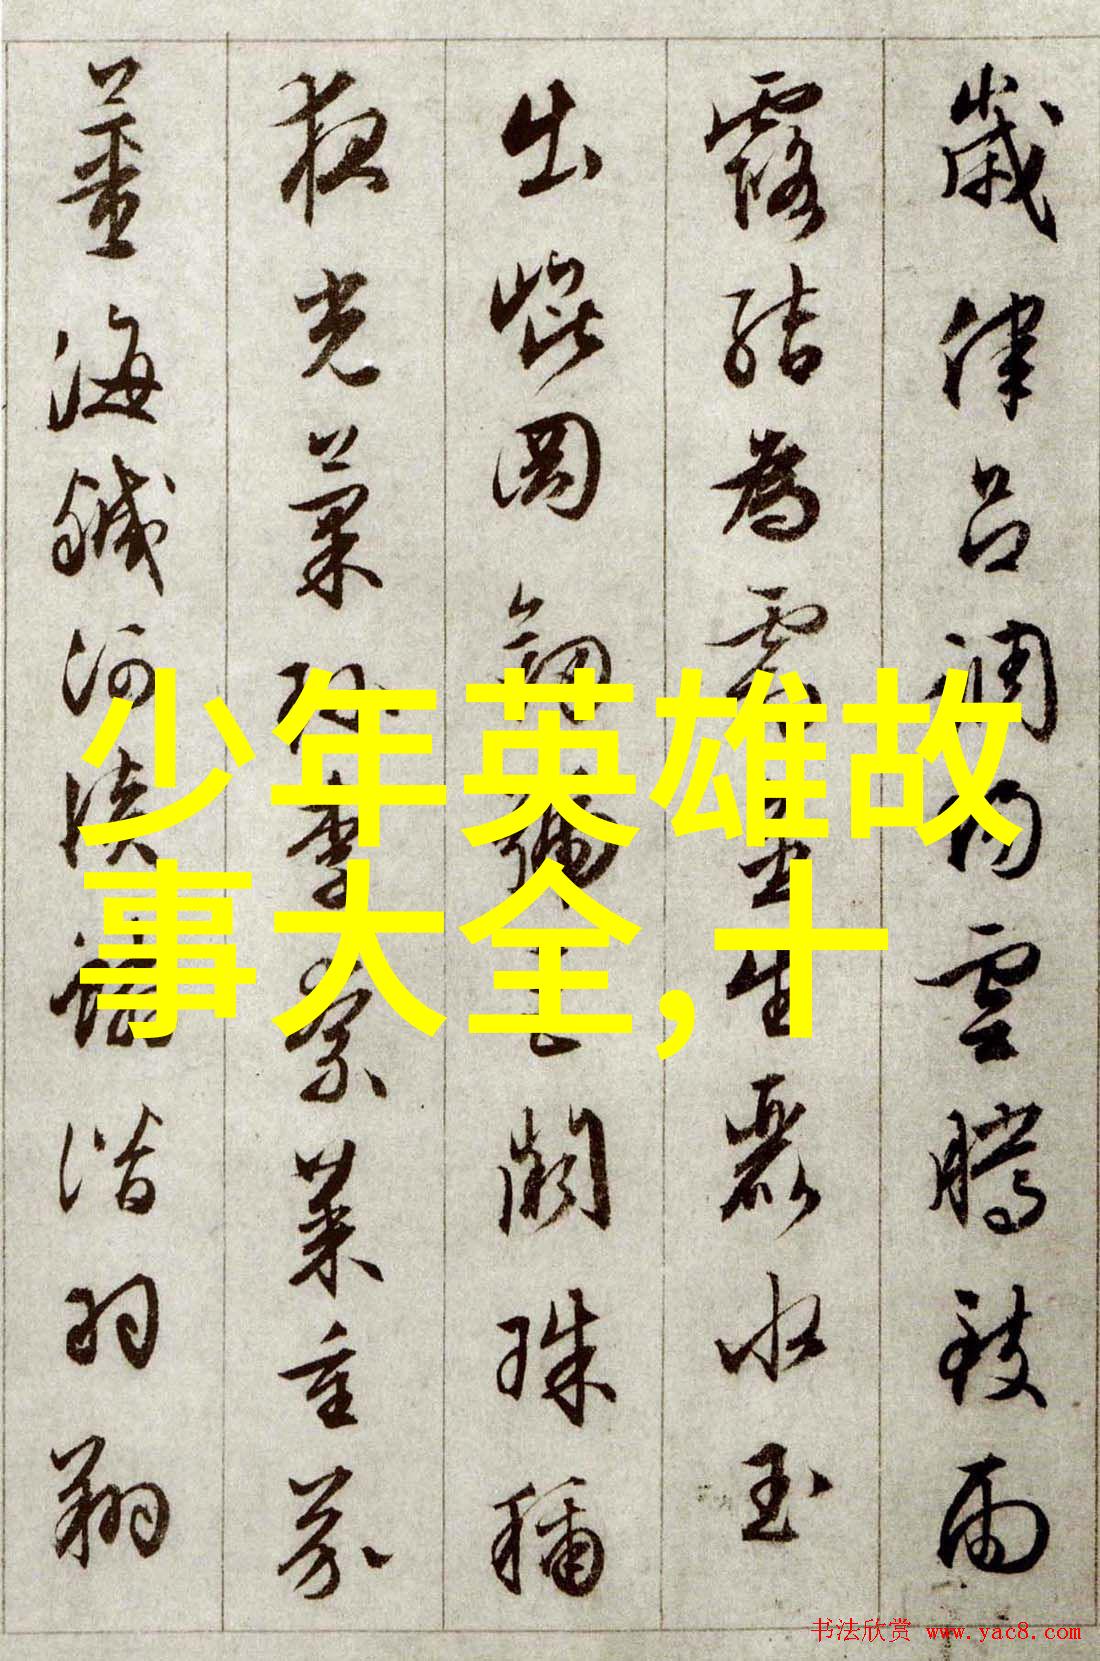 歲律呂調陽雲騰致雨
露結為霜金生麗水玉
出崑岡劒號巨闕珠稱
夜光菓珍李柰菜重芥
薑海鹹河淡鱗潛羽翔
少年英雄故
事大全,十
书法欣赏 www.yac8.com